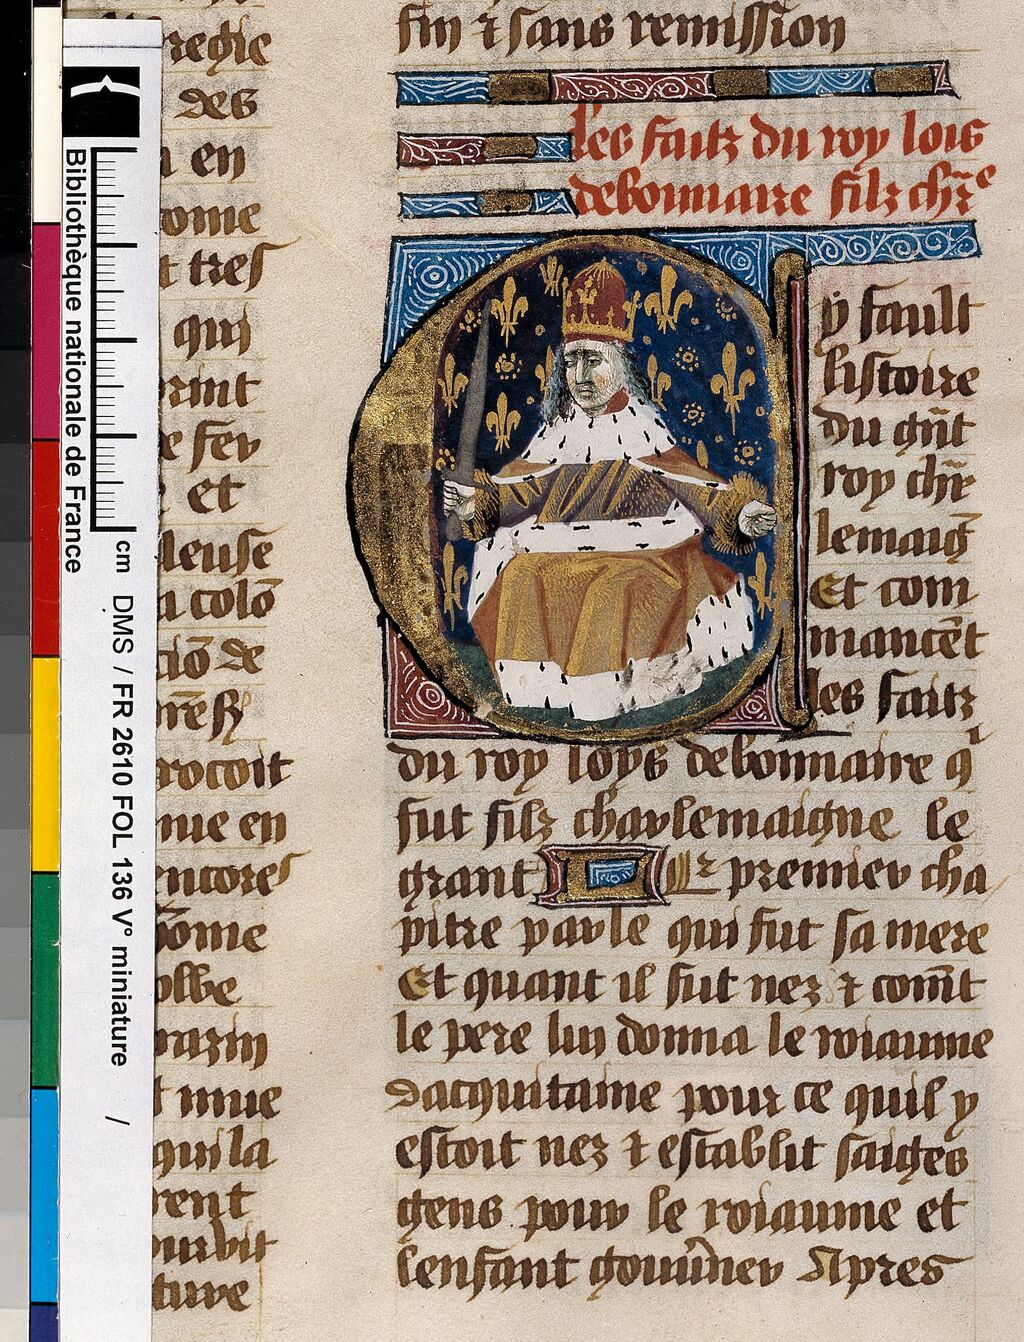 Bibliothèque nationale de France
cm DMS / FR 2610 FOL 136 V° miniature /
des
en
come
tres
qui
et
de
nue en
encores
mue
qui la
fin ⁊ sans remission
les faitz du roy lois
debonnaire filz chr̄e
Cy fault
listoire
du gn̄t
roy chr̄
lemaiḡ
Et com
mancēt
les faitz
du roy loys debonnaire q̄
fut filz charlemaigne le
grant Le premier cha
pitre parle qui fut sa mere
Et quant il fut nez ⁊ com̄t
le pere luy donna le roiaume
dacquitaine pour ce quil y
estoit nez ⁊ establit saiges
gens pour le roiaume et
lenfant gouūner Apres